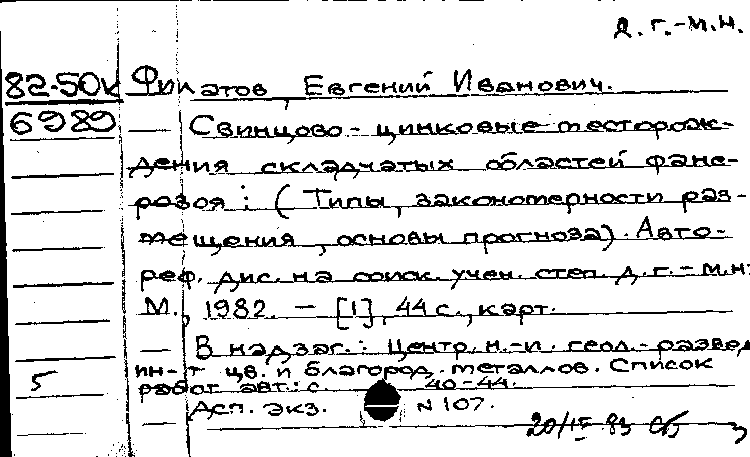 д. г.-м.н.
82-50к Филатов, Евгений Иванович.
6989 — Свинцово-цинковые месторож-
дения складчатых областей фане-
розоя : (Типы, закономерности раз-
мещения, основы прогноза). Авто-
реф. дис. на соиск. учен. степ. д. г.-м.н.
М., 1982. — [1], 44 с., карт.
— В надзаг.: Центр. н.-и. геол.-развед.
ин-т цв. и благород. металлов. Список
5 работ авт.: с. 40-44.
— Дсп. экз. N 107.
20/IV 83